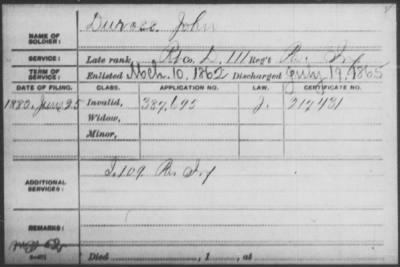 Duross, John
NAME OF SOLDIER:
SERVICE: Late rank, Co. D, 111 Reg't Inf
TERM OF SERVICE: Enlisted Mch. 10, 1862 Discharged July 19, 1865
DATE OF FILING. CLASS. APPLICATION NO. LAW. CERTIFICATE NO.
1880, June 25 Invalid, 387,695 J. 217431
Widow,
Minor,
ADDITIONAL SERVICES: I. 109 Pa Inf
REMARKS:
Died , 1 , at